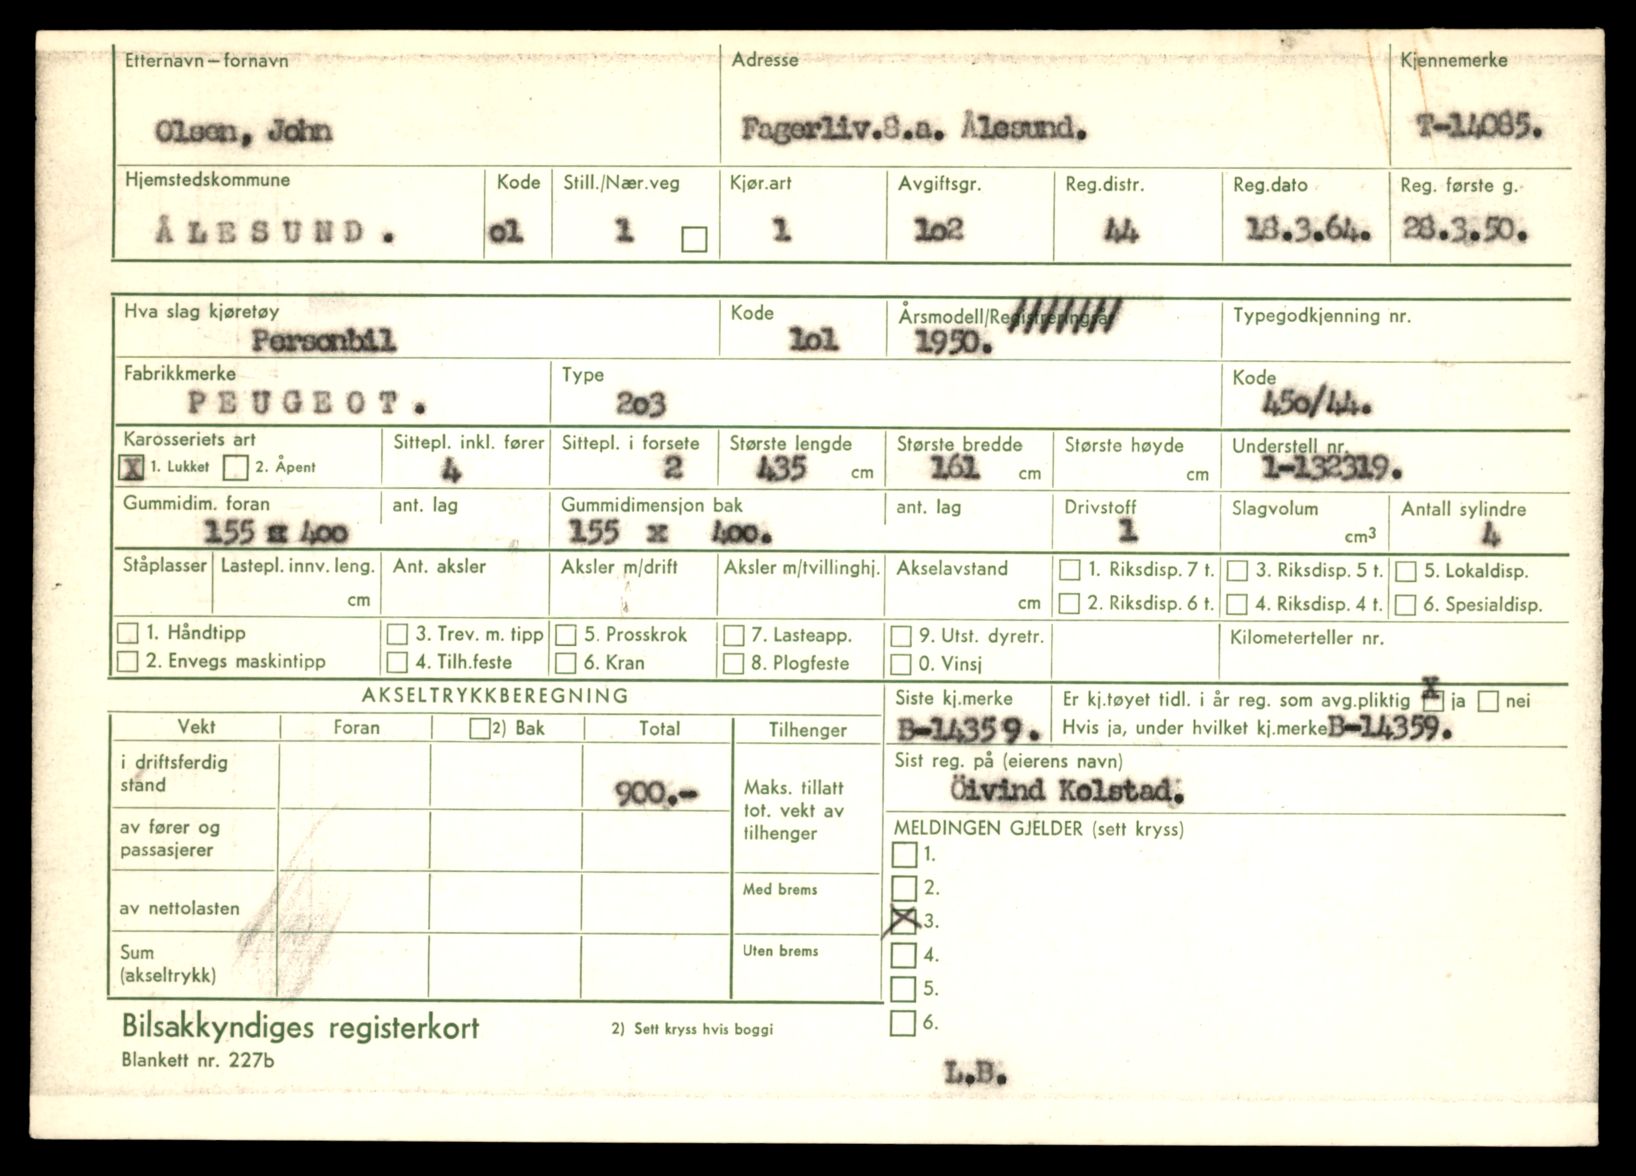 Etternavn – fornavn Adresse Kjennemerke
Olsen, John Fagerliv.S.a. Ålesund. T-14085.
Hjemstedskommune Kode Still./Nær.veg Kjør.art Avgiftsgr. Reg.distr. Reg.dato Reg. første g.
ÅLESUND. o1 1 1 1o2 44 18.3.64. 28.3.50.
Hva slag kjøretøy Kode Årsmodell/Registreringsår Typegodkjenning nr.
Personbil 1o1 1950.
Fabrikkmerke Type Kode
PEUGEOT. 2o3 45o/44.
Karosseriets art Sittepl. inkl. fører Sittepl. i forsete Største lengde Største bredde Største høyde Understell nr.
X 1. Lukket 2. Åpent 4 2 435 cm 161 cm cm 1-132319.
Gummidim. foran ant. lag Gummidimensjon bak ant. lag Drivstoff Slagvolum Antall sylindre
155 x 4oo 155 x 4oo. 1 cm3 4
Ståplasser Lastepl. innv. leng. Ant. aksler Aksler m/drift Aksler m/tvillinghj. Akselavstand 1. Riksdisp. 7 t. 3. Riksdisp. 5 t. 5. Lokaldisp.
cm cm 2. Riksdisp. 6 t. 4. Riksdisp. 4 t. 6. Spesialdisp.
1. Håndtipp 3. Trev. m. tipp 5. Prosskrok 7. Lasteapp. 9. Utst. dyretr. Kilometerteller nr.
2. Envegs maskintipp 4. Tilh.feste 6. Kran 8. Plogfeste 0. Vinsj
AKSELTRYKKBEREGNING Siste kj.merke Er kj.tøyet tidl. i år reg. som avg.pliktig X ja nei
Vekt Foran 2) Bak Total Tilhenger B-14359. Hvis ja, under hvilket kj.merke B-14359.
i driftsferdig
stand 900.-
Maks. tillatt
tot. vekt av
tilhenger
Sist reg. på (eierens navn)
Öivind Kolstad.
av fører og
passasjerer
MELDINGEN GJELDER (sett kryss)
1.
Med brems 2.
av nettolasten X 3.
Sum
(akseltrykk)
Uten brems 4.
5.
6.
Bilsakkyndiges registerkort 2) Sett kryss hvis boggi
Blankett nr. 227b
L.B.